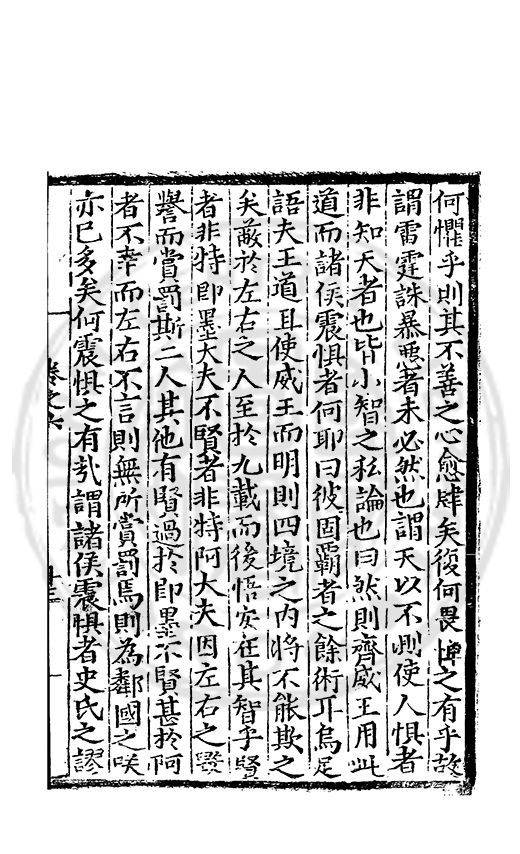 何懼乎則其不善之心愈肆矣復何畏憚之有乎故
謂雷霆誅暴惡者未必然也謂天以不測使人懼者
非知天者也皆小智之私論也曰然則齊威王用此
道而諸侯震懼者何耶曰彼固霸者之餘術耳烏足
語夫王道且使威王而明則四境之內將不能欺之
矣蔽於左右之人至於九載而後悟安在其智乎賢
者非特即墨大夫不賢者非特阿大夫因左右之毀
譽而賞罰斯二人其他有賢過於即墨不賢甚於阿
者不幸而左右不言則無所賞罰焉則為鄰國之咲
亦已多矣何震惧之有㢤謂諸侯震惧者史氏之謬
卷之六
十三